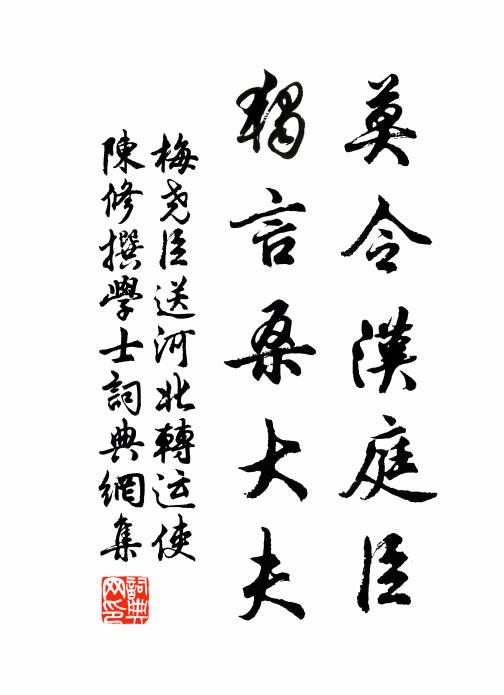 莫令漢庭臣
獨言桑大夫
梅尧臣送河北轉运使
陳修撰學士詞典網集
詞典网印